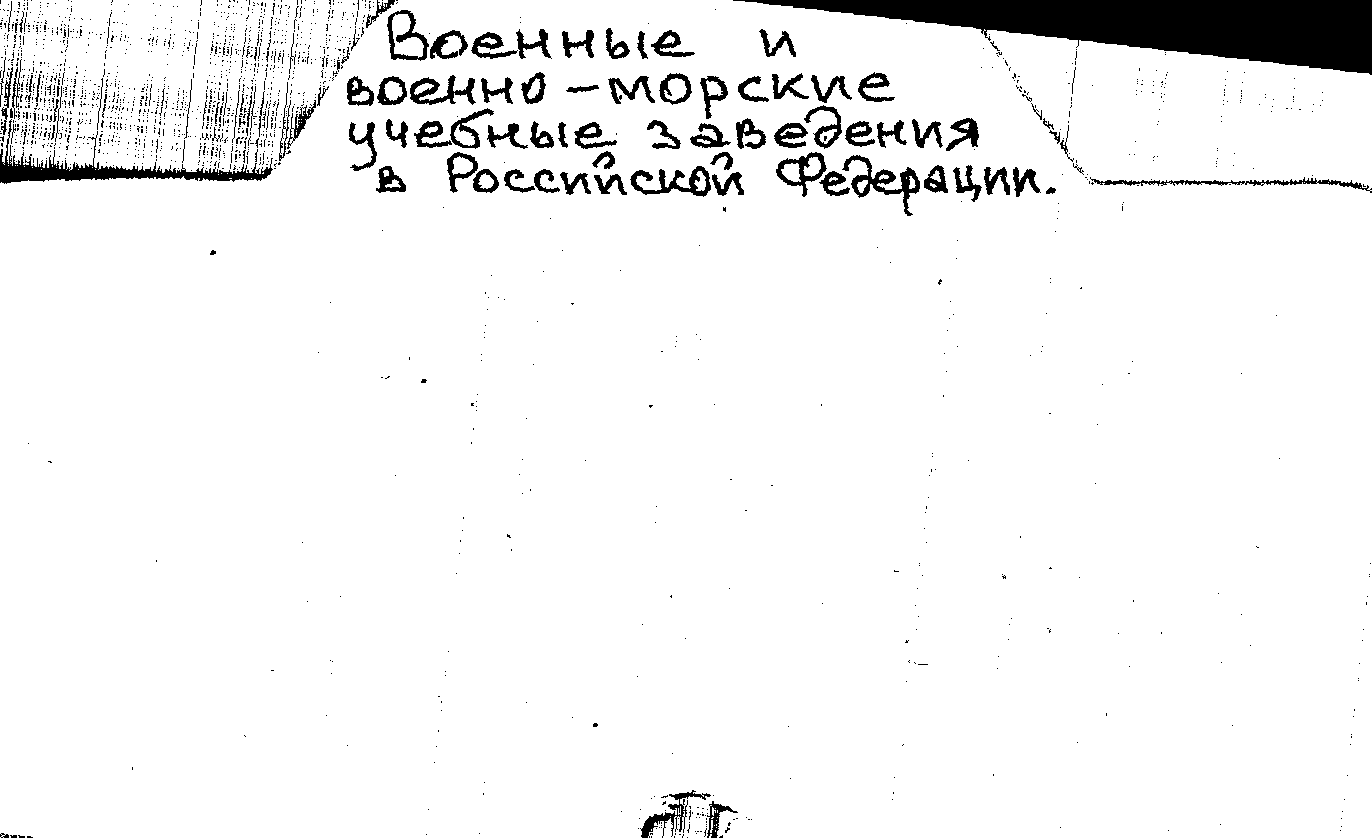 Военные и
военно-морские
учебные заведения
в Российской Федерации.